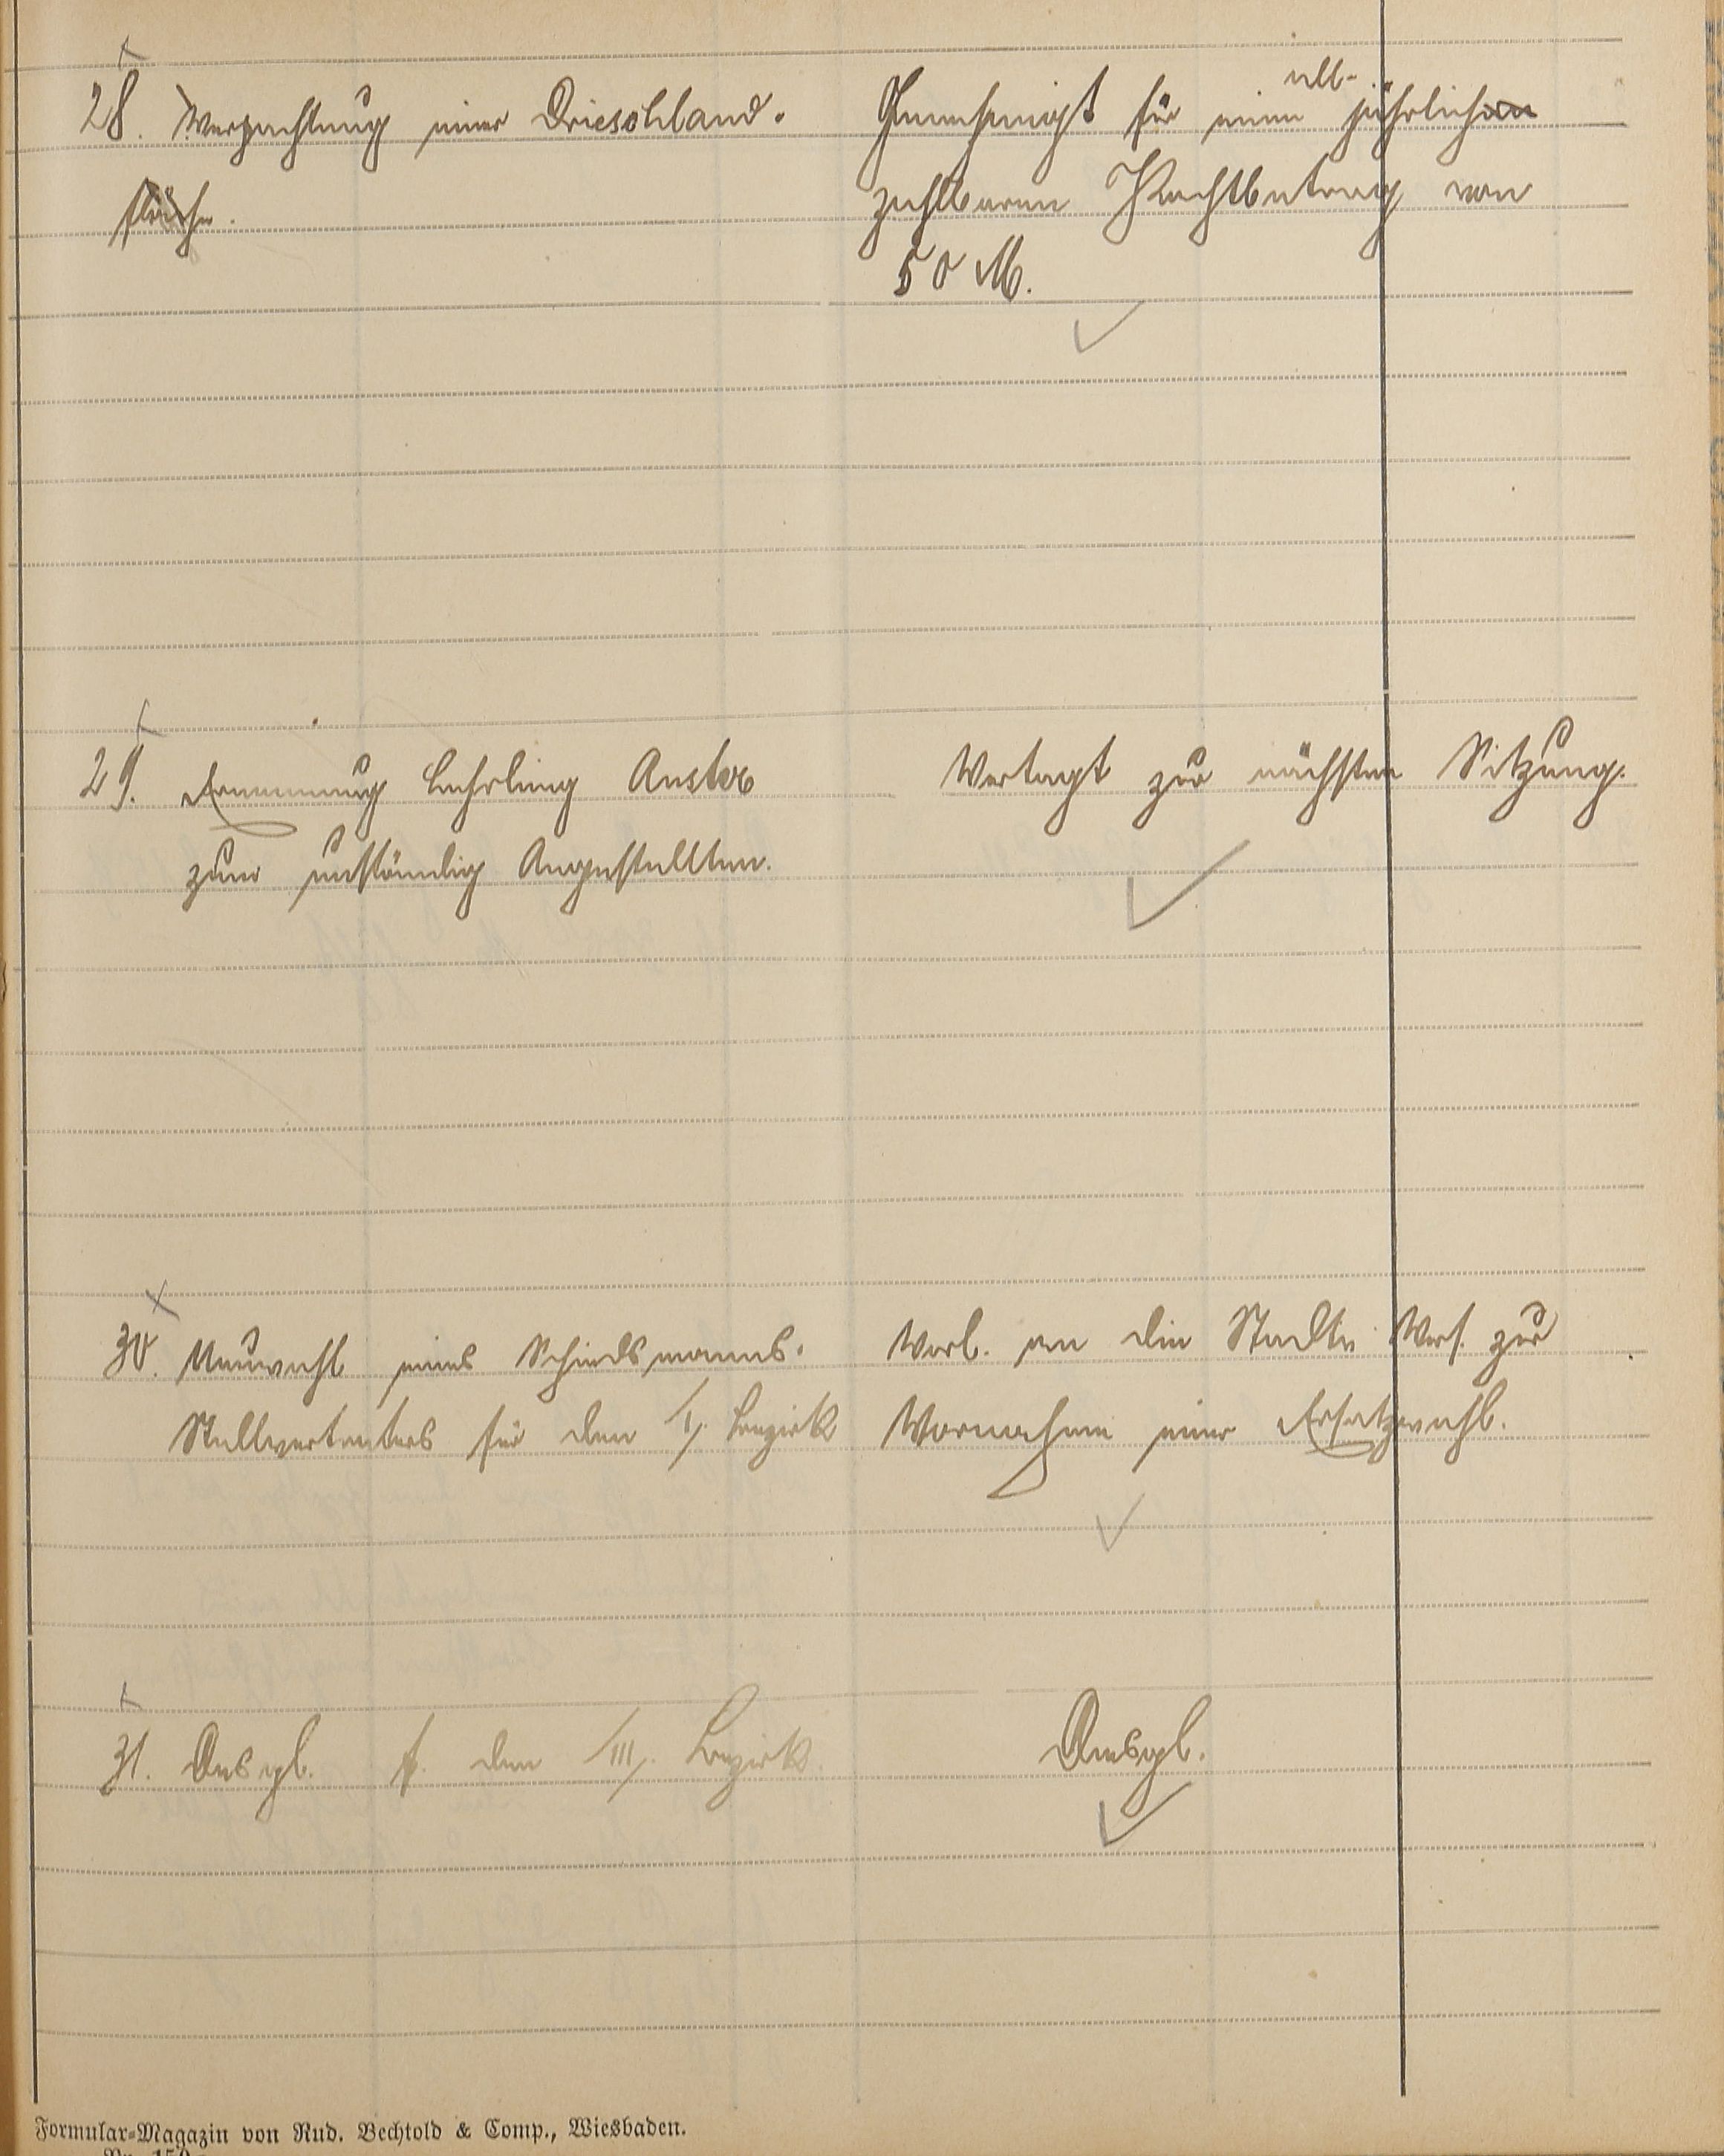 28. Verpachtung einer Driesohland-
fläche.
Genehmigt für einen all-
jährlich
zahlbaren Pachtbetrag von
50 M.
29. Ernennung Lehrling Auster
zum unständig Angestellten.
Vertagt zur nächsten Sitzung.
30. Neuwahl eines Schiedsmanns-
Stellvertreters für den I. Bezirk
Vorl. an die Stadtv. Vers. zur
Vornahme einer Ersatzwahl.
31. Desgl. f. den III. Bezirk.
Desgl.
Formular-Magazin von Rud. Bechtold & Comp., Wiesbaden.